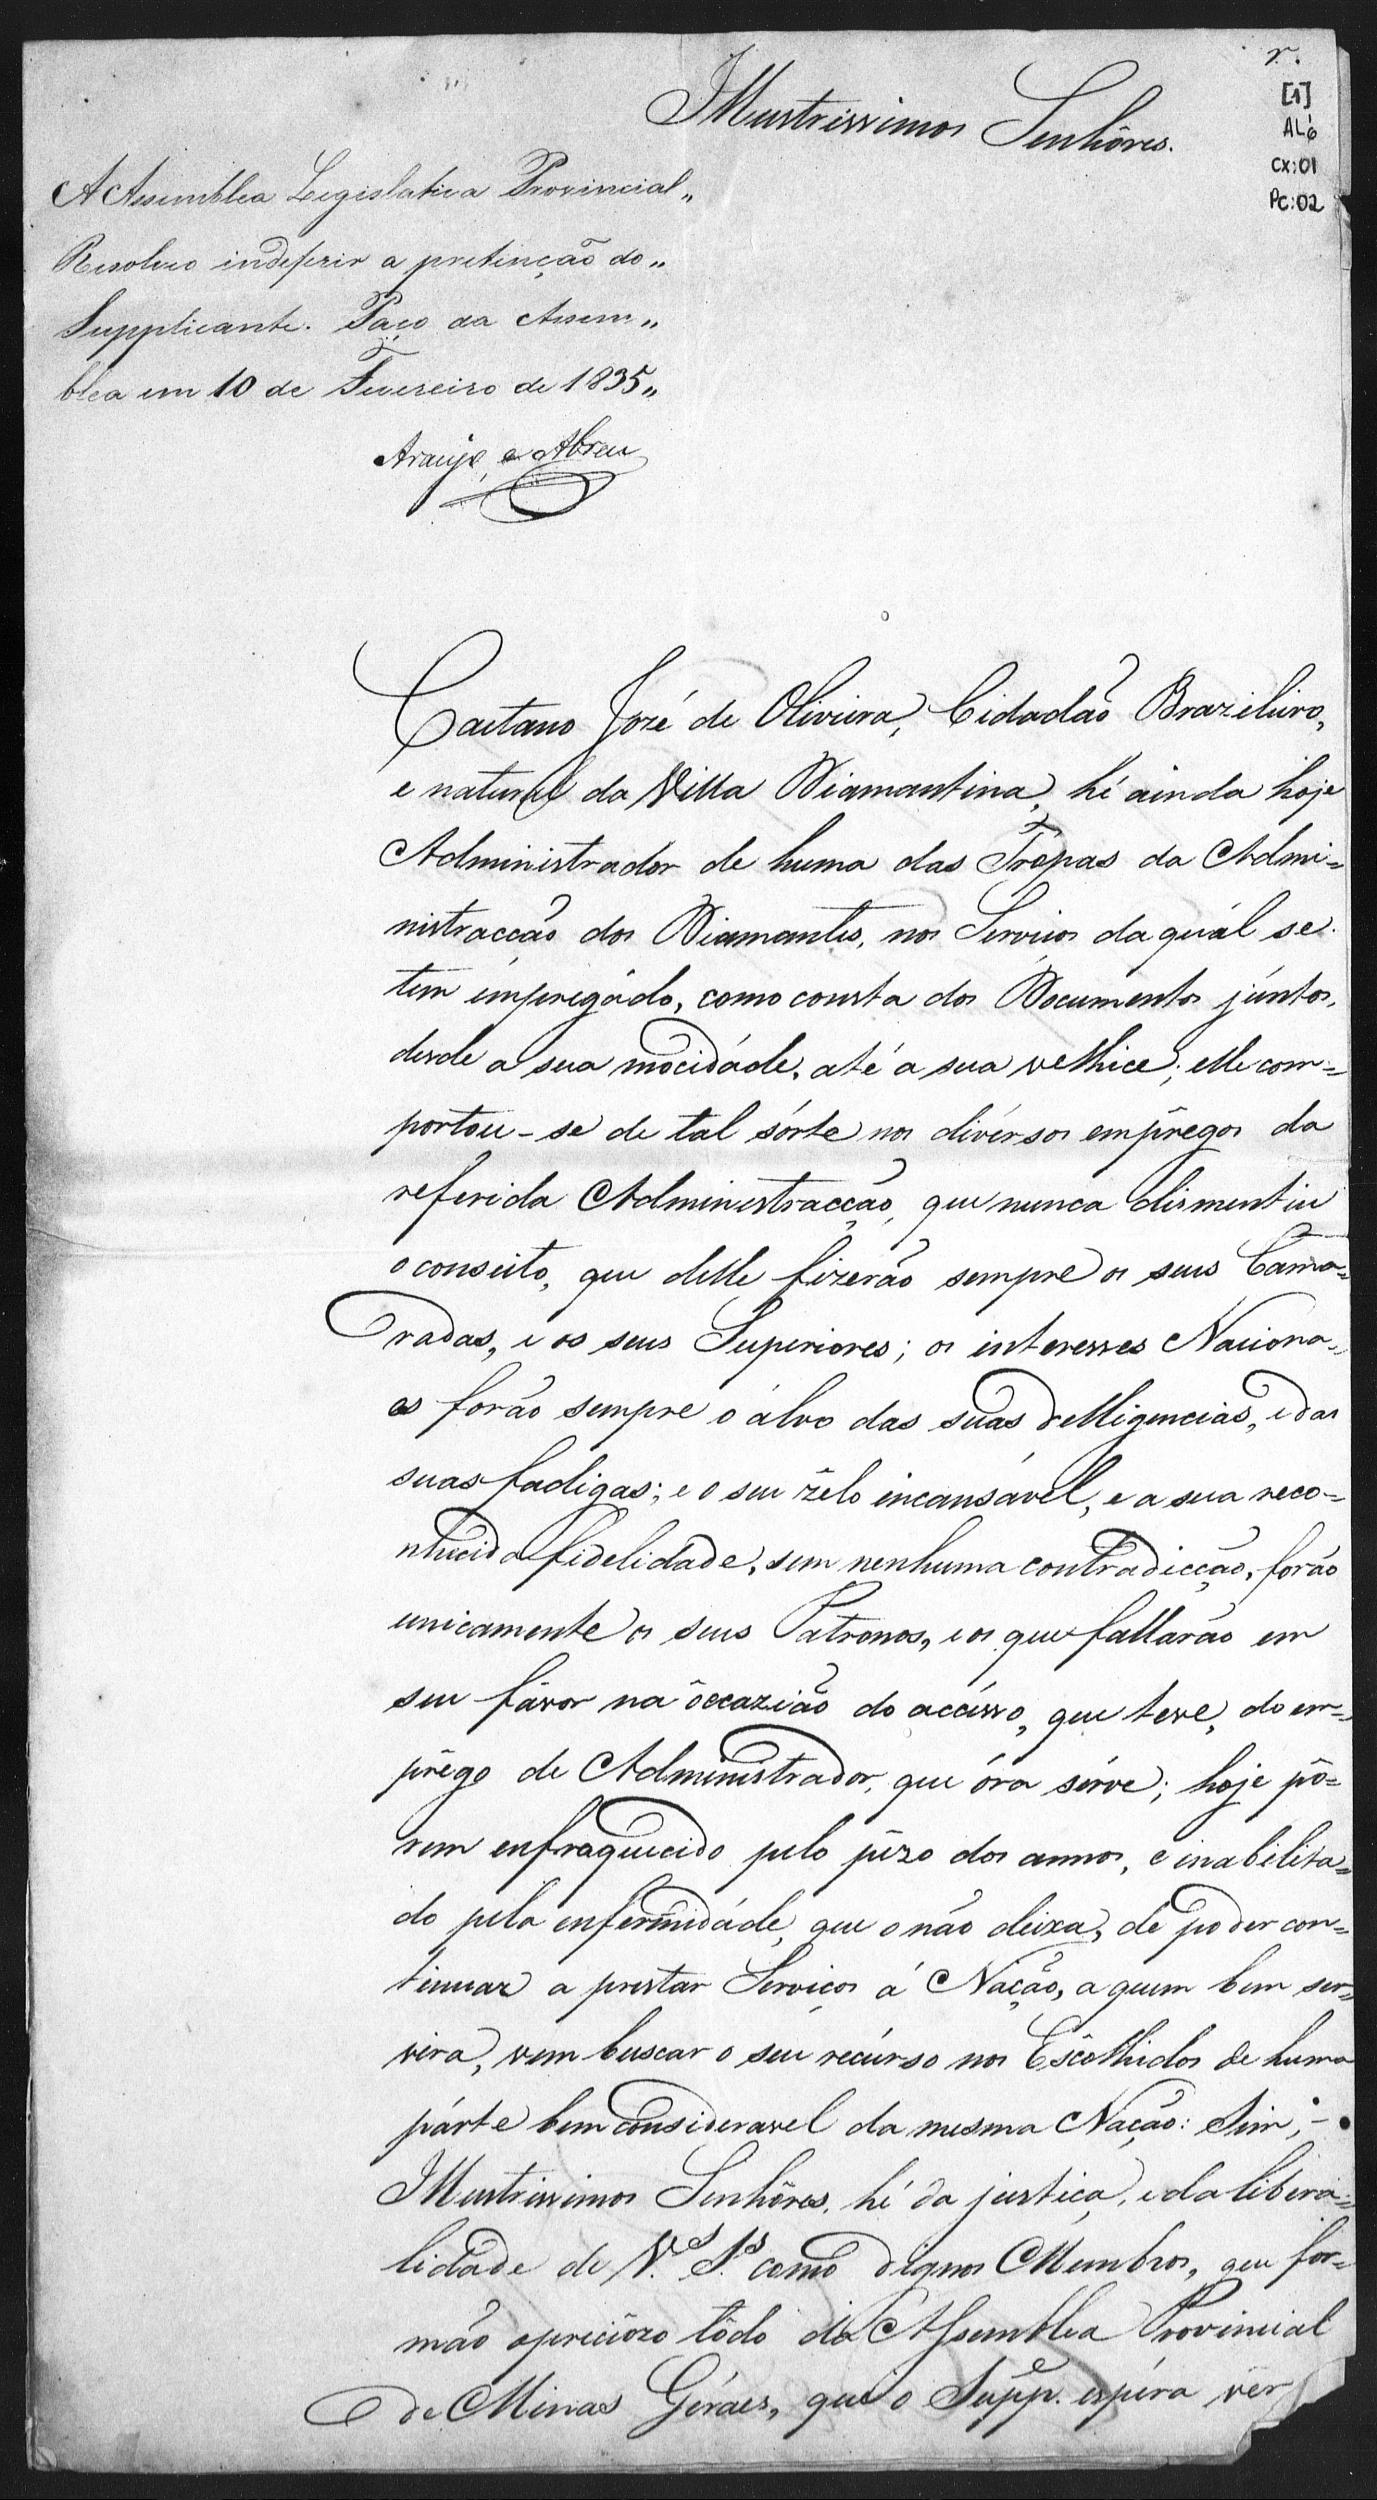 r.
[1]
AL6
CX:01
PC:02
Illustrissimos Senhôres.
A Assemblea Legislativa Provincial„
Resolveo indeferir a pretinção do„
Supplicante. Paço da Assem„
blea em 10 de Fevereiro de 1835„
Araujo e Abreu
Caetano José de Oliveira, Cidadão Brazileiro,
e natural da Villa Diamantina, hé ainda hoje
Administrador de huma das Trópas da Admi=
nistracção dos Diamantes, nos Serviços da quál se
tem empregádo, como consta dos Documentos júntos,
desde a sua mocidáde, até a sua velhice; elle com=
portou-se de tal sórte nos divérsos emprêgos da
referida Administracção, que nunca dismentiu
o conseito, que delle fizerão sempre os seus Cama=
radas, e os seus Superiores; os interesses Naciona=
es forão sempre o álvo das suas delligencias, e das
suas fadigas; e o seu zêlo incansável, e a sua reco=
nhecida fidelidade, sem nenhuma contradicção, forão
unicamente os seus Patronos, e os que fallarão em
seu fávor na ôccazião do acésso, que teve, do em=
prêgo de Administrador, que óra sérve; hoje pô=
rem enfraquecido pelo pêzo dos annos, e inabilita=
do pela enfermidáde, que o não deixa, de poder con=
tinuar a prestar Serviços á Nação, a quem bem ser=
vira, vem buscar o seu recúrso nos Escôlhidos de huma
párte bem consideravel da mesma Nação: Sim, -
Illustrissimos Senhôres, hé da justiça, e da libera=
lidade de V.s S.s como dignos Membros, que for=
mão o preciôzo tôdo da Assemblea Provincial
de Minas Géraes, que o Supp.e espéra vêr